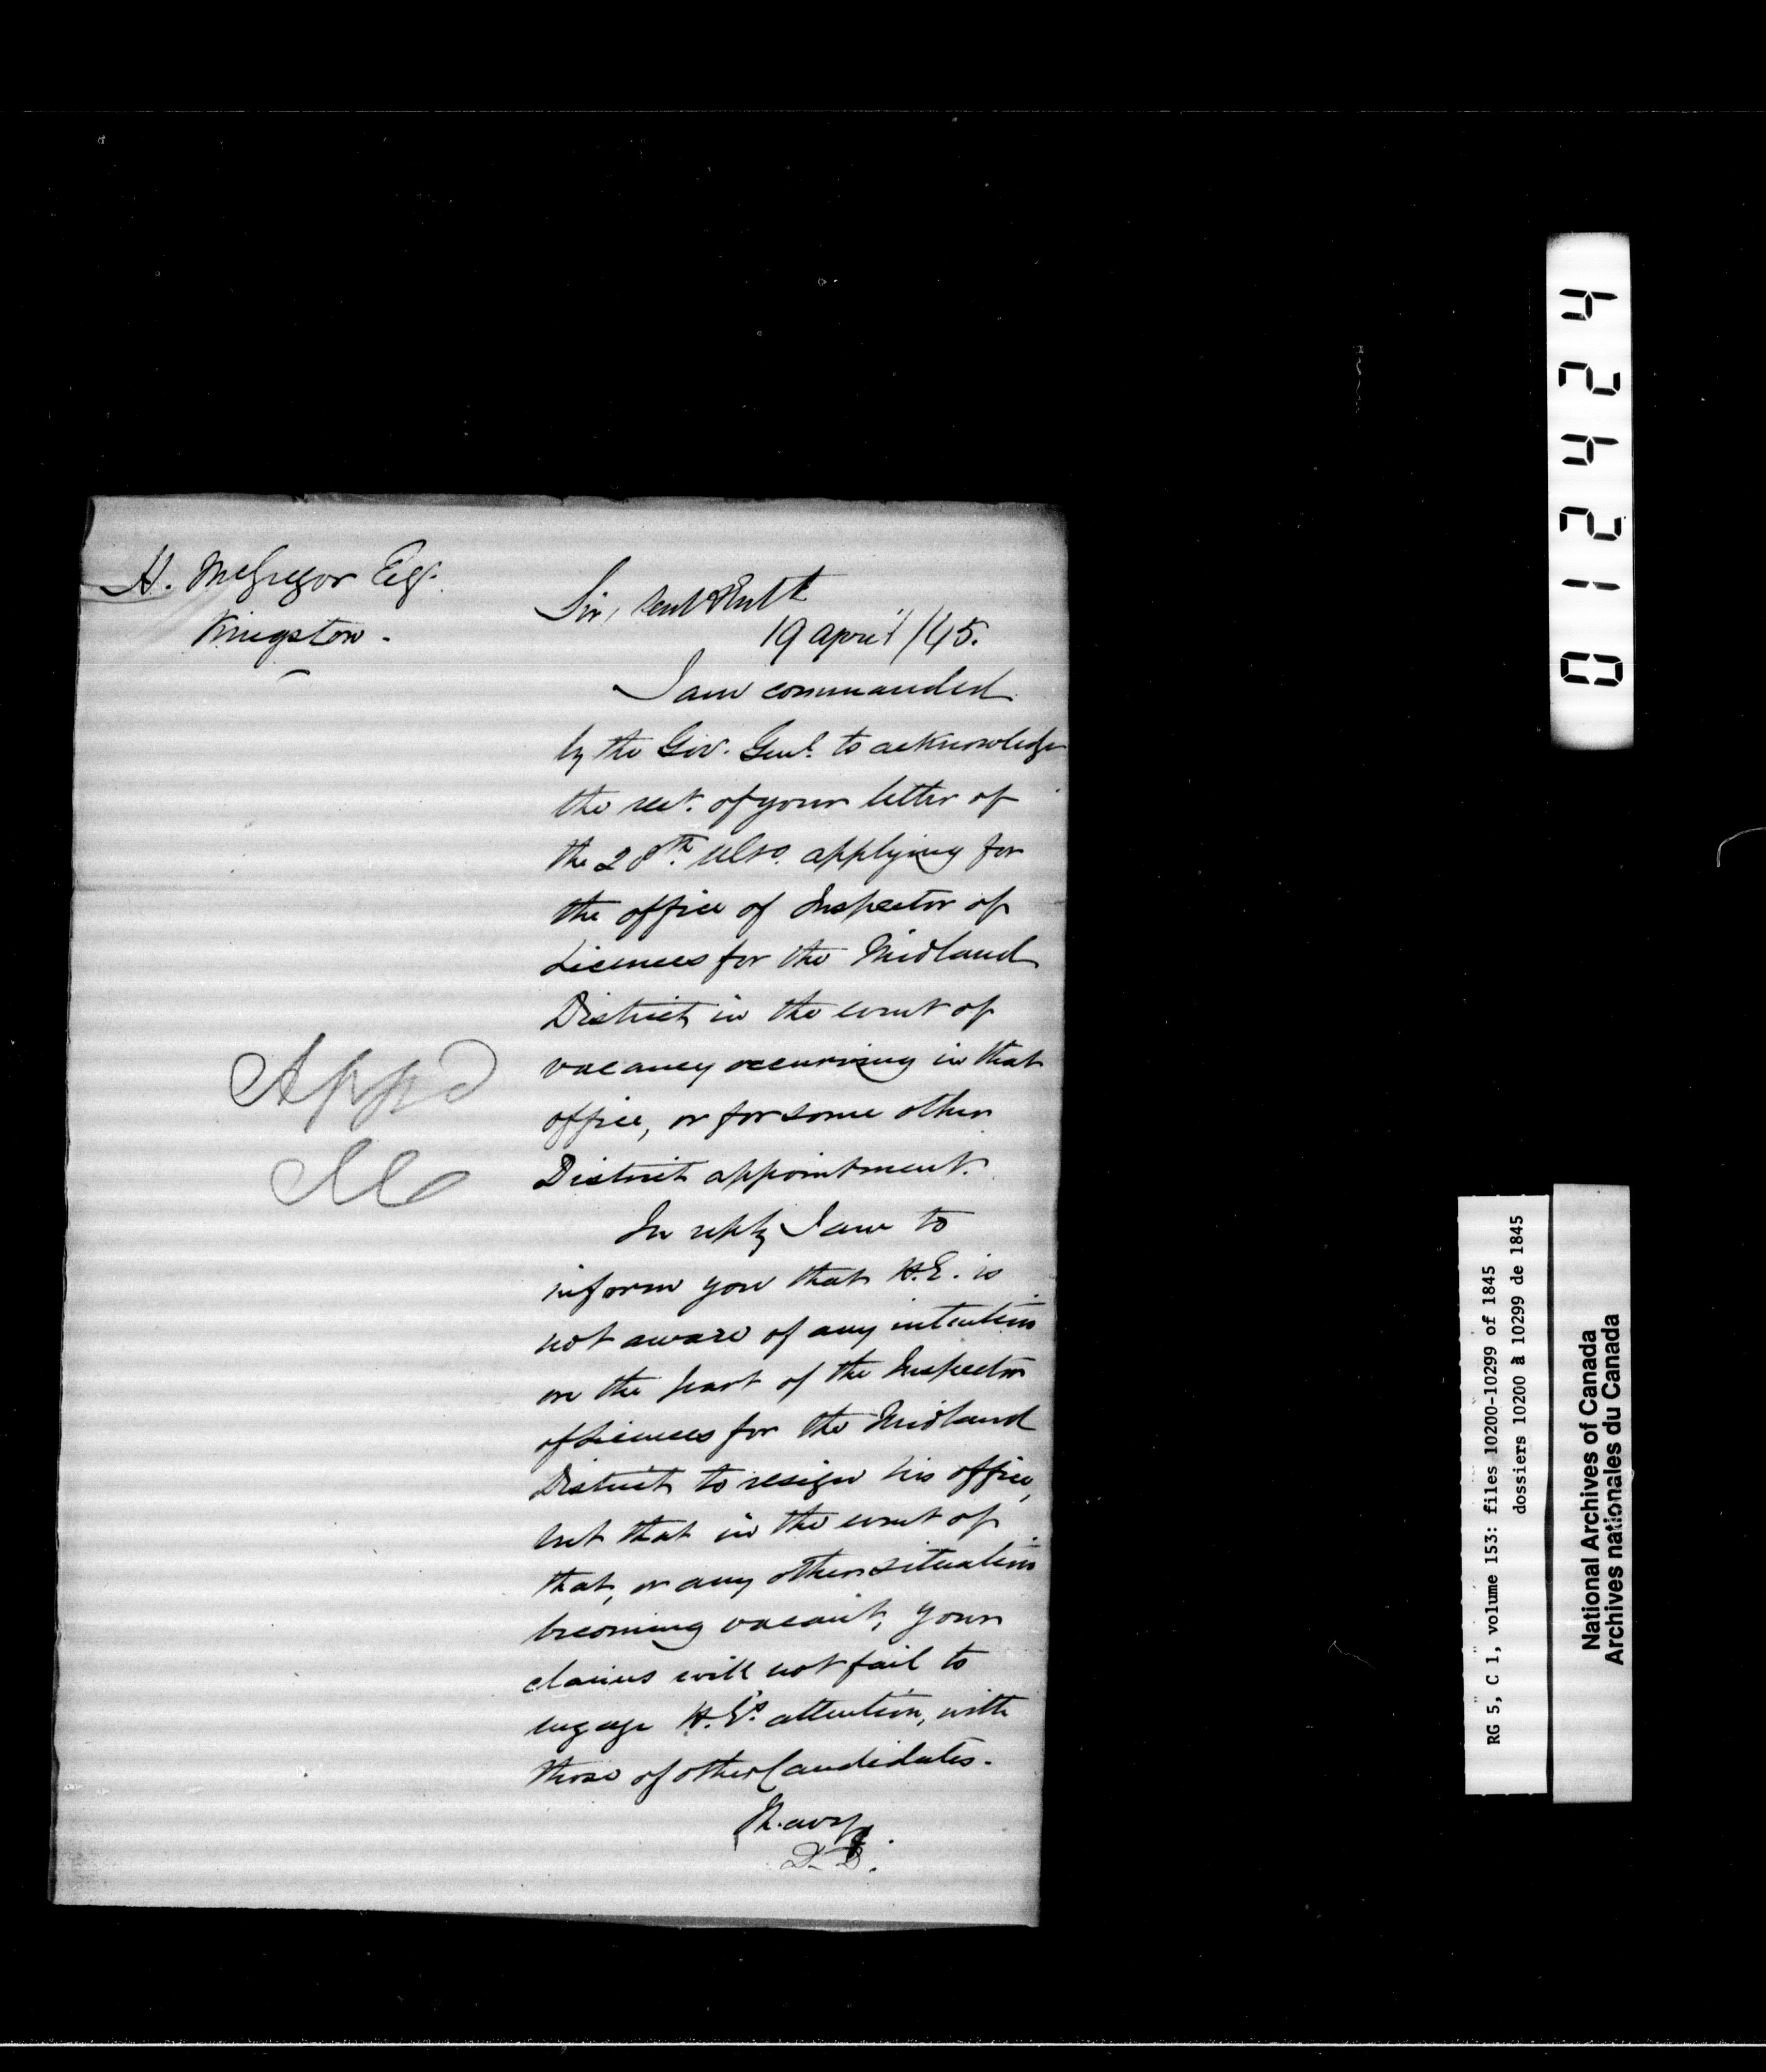 H. McGregor Esq.
Kingston.
Sir,
19 April /45.
I am commanded
by the Gov. Genl. to acknowledge
the rect. of your letter of
the 28th. Ulto. applying for
the office of Inspector of
Licences for the Midland
District in the event of
vacancy occurring in that
office, or for some other
District appointment.
In reply I am to
inform you that H.E. is
not aware of any intention
on the part of the Inspector
of Licences for the Midland
District to resign his office,
but that in the event of
that, or any other situation
becoming vacant, your
claims will not fail to
engage H.E's. attention, with
those of other Candidates.
I h. avoy
D. D.
Appd
424210
RG 5, C 1, volume 153: files 10200-10299 of 1845
dossiers 10200 à 10299 de 1845
National Archives of Canada
Archives nationales du Canada